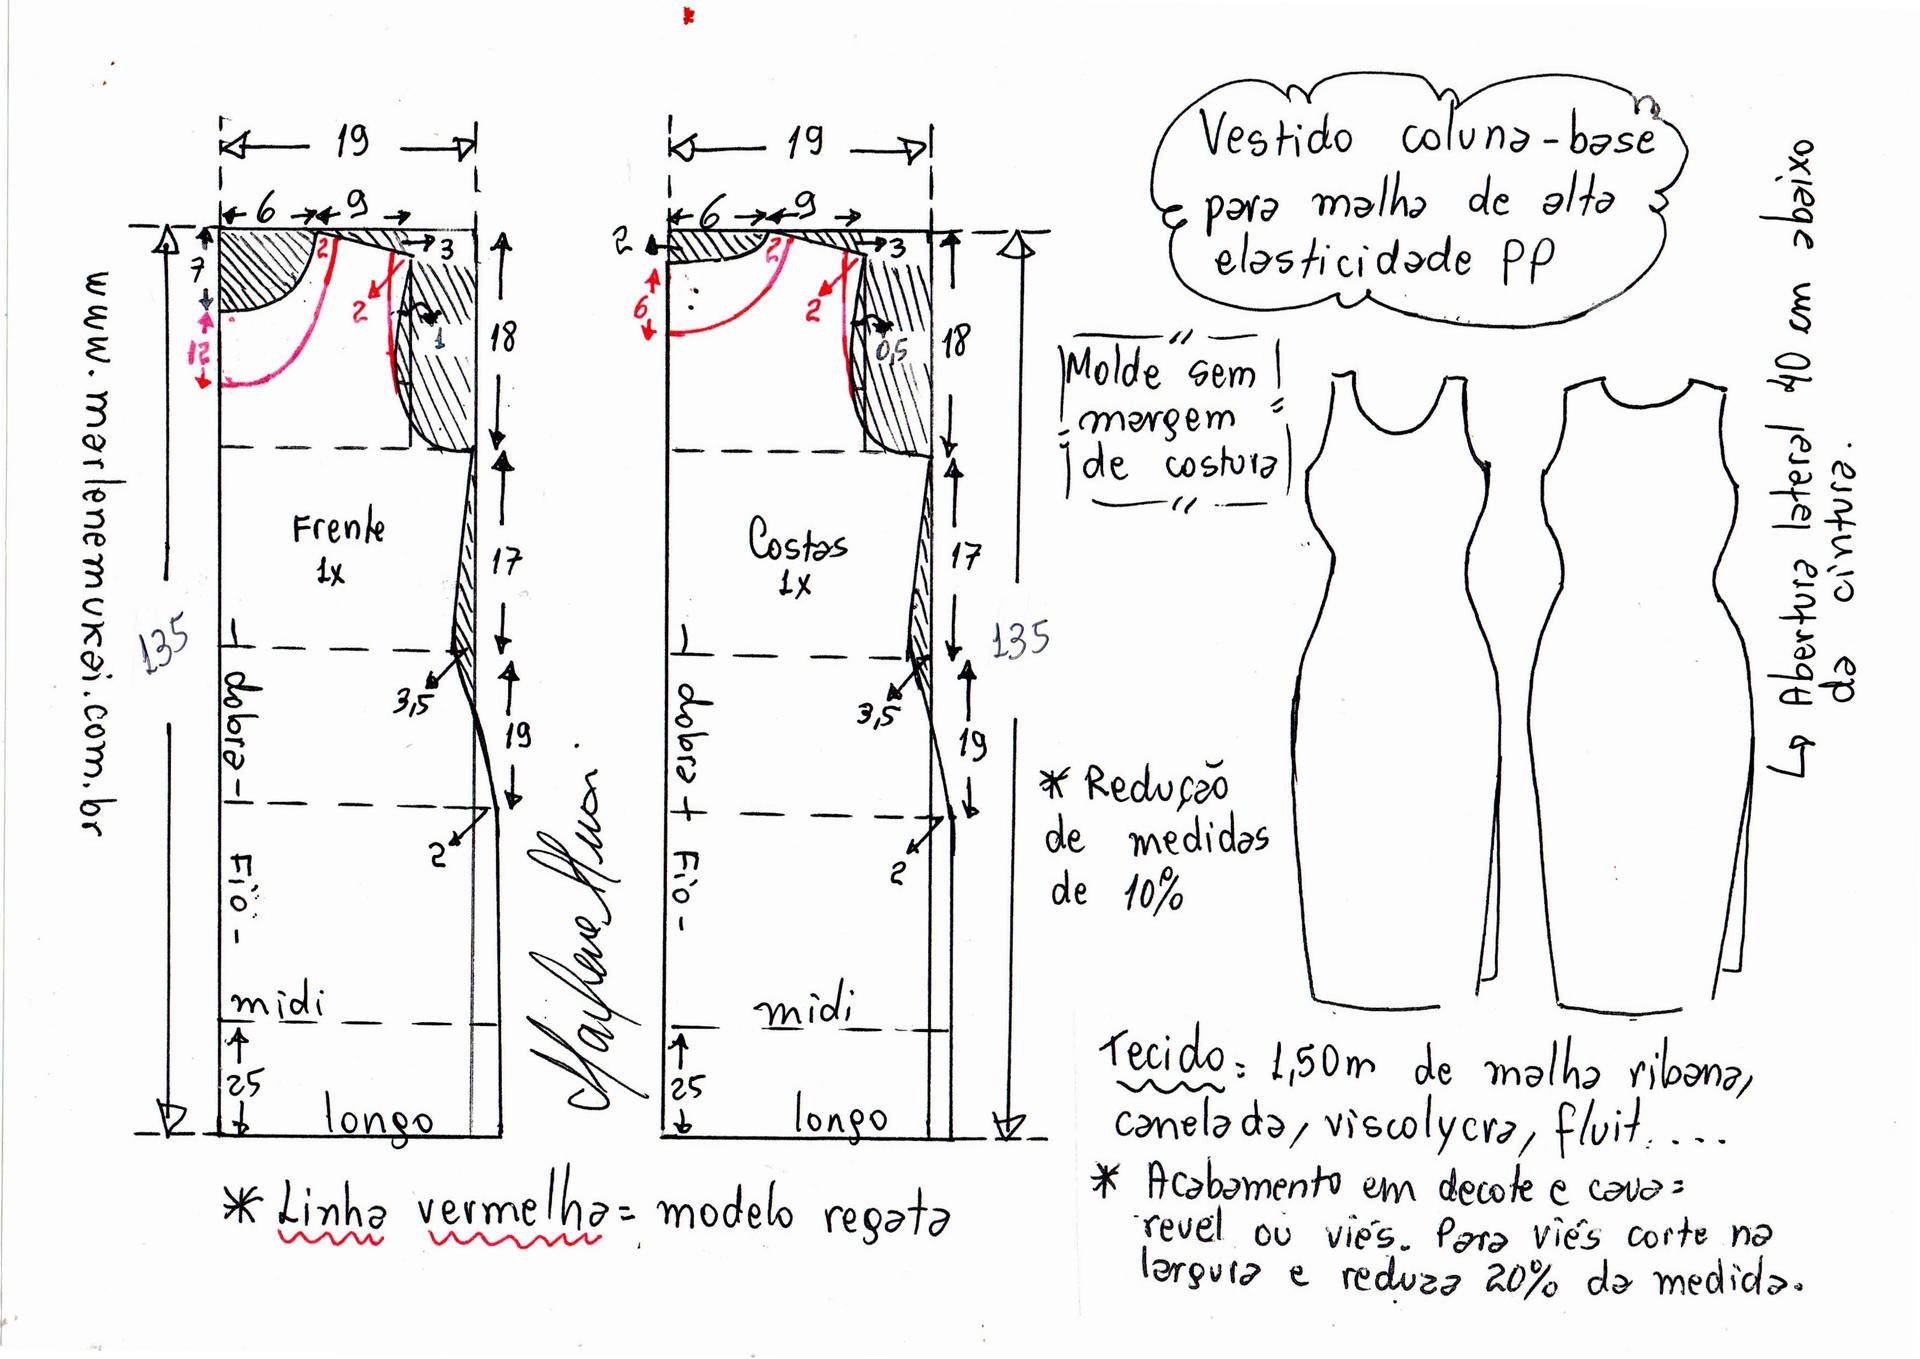 Vestido coluna-base
para malha de alta
elasticidade PP
Molde sem
margem
de costura
↳ Abertura lateral 40 cm abaixo
da cintura.
www.marlenemukai.com.br
19
6
9
7
2
3
12
2
1
18
Frente
1x
17
135
3,5
19
dobra
Fio
2
midi
25
longo
19
6
9
2
2
3
6
2
0,5
18
Costas
1x
17
135
3,5
19
dobra
Fio
2
midi
25
longo
Marlene Mukai
* Redução
de medidas
de 10%
* Linha vermelha = modelo regata
Tecido = 1,50m de malha ribana,
canelada, viscolycra, fluit....
* Acabamento em decote e cava=
revel ou viés. Para viés corte na
largura e reduza 20% da medida.